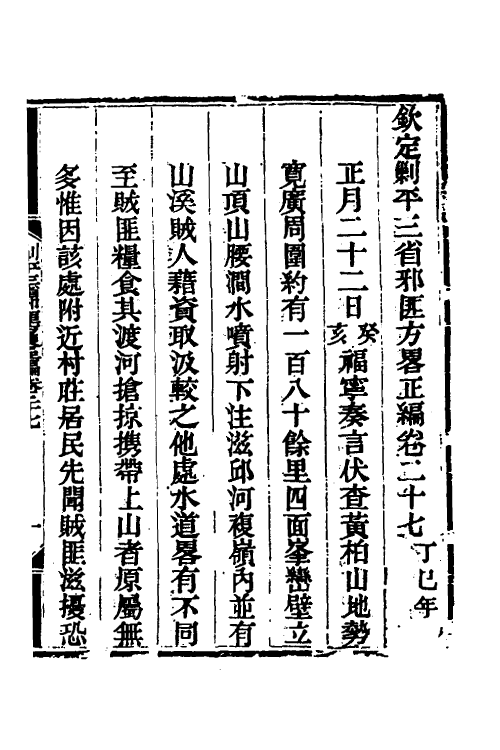 欽定剿平三省邪匪方畧正編卷二十七 丁巳年
正月二十二日癸亥福寧奏言伏查黃柏山地勢
寬廣周圍約有一百八十餘里四面峯巒壁立
山頂山腰澗水噴射下注滋邱河複嶺內並有
山溪賊人藉資取汲較之他處水道畧有不同
至賊匪糧食其渡河搶掠携帶上山者原屬無
多惟因該處附近村莊居民先聞賊匪滋擾恐